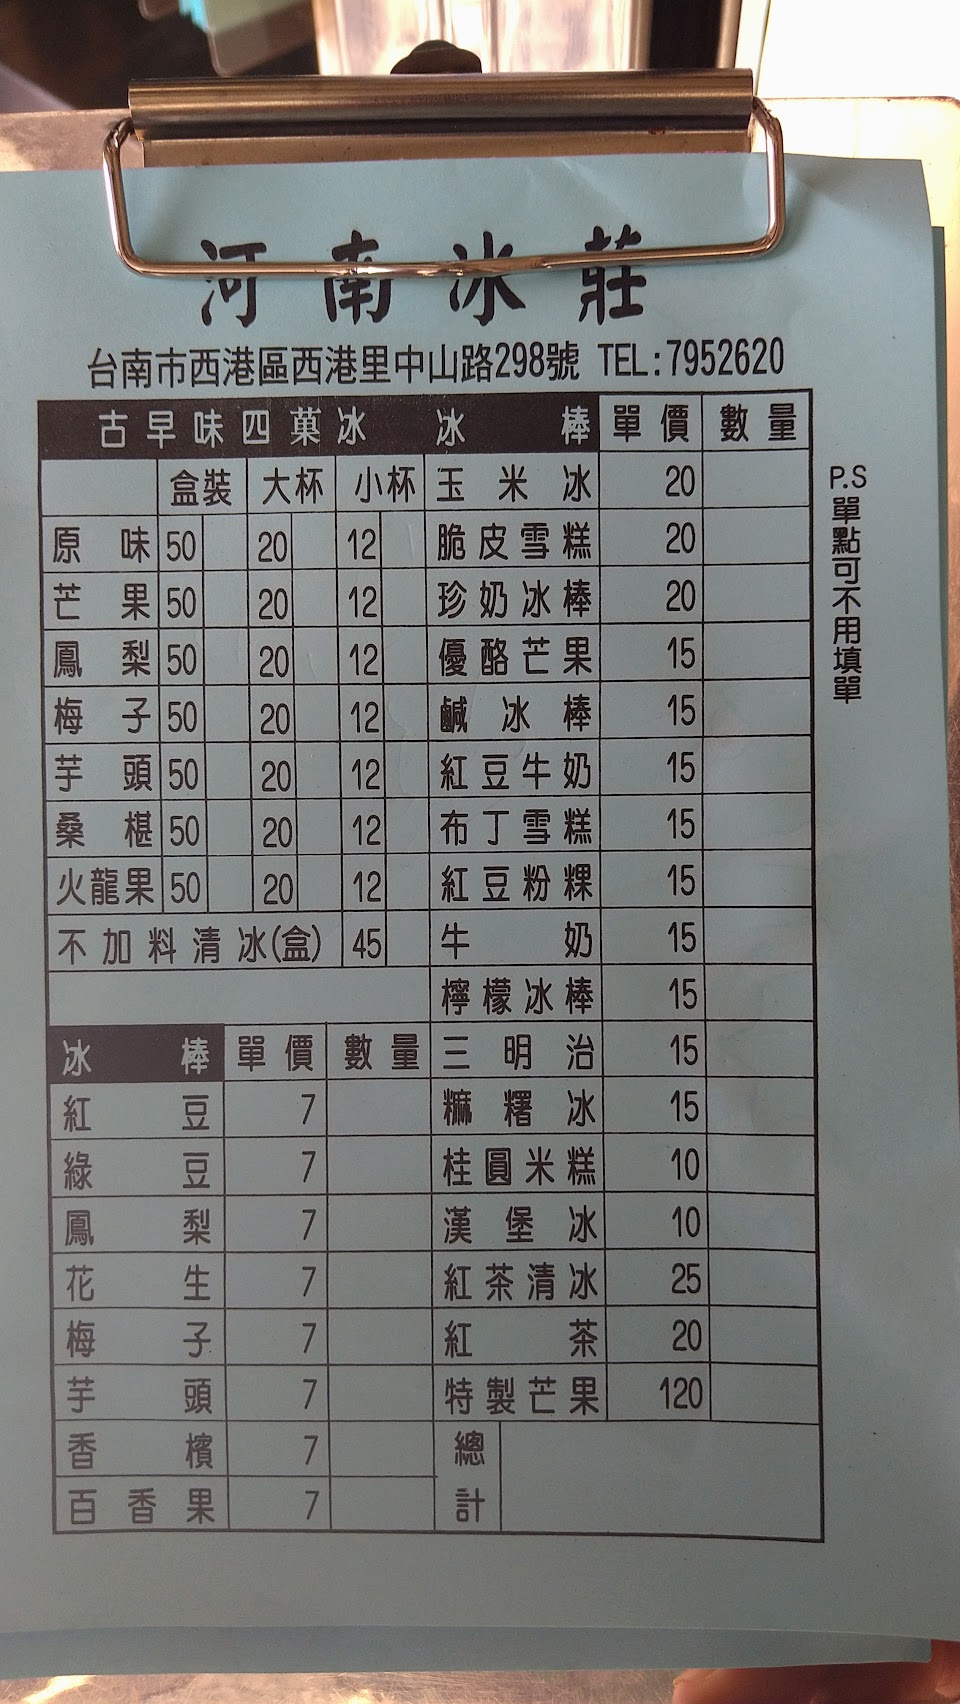 河南冰莊
台南市西港區西港里中山路298號 TEL:7952620
古早味四菓冰 冰棒 單價 數量
盒裝 大杯 小杯 玉米冰 20
原味 50 20 12 脆皮雪糕 20
芒果 50 20 12 珍奶冰棒 20
鳳梨 50 20 12 優酪芒果 15
梅子 50 20 12 鹹冰棒 15
芋頭 50 20 12 紅豆牛奶 15
桑椹 50 20 12 布丁雪糕 15
火龍果 50 20 12 紅豆粉粿 15
不加料清冰(盒) 45 牛奶 15
檸檬冰棒 15
冰棒 單價 數量 三明治 15
紅豆 7 糍糬冰 15
綠豆 7 桂圓米糕 10
鳳梨 7 漢堡冰 10
花生 7 紅茶清冰 25
梅子 7 紅茶 20
芋頭 7 特製芒果 120
香檳 7 總
百香果 7 計
P.S
單點可不用填單